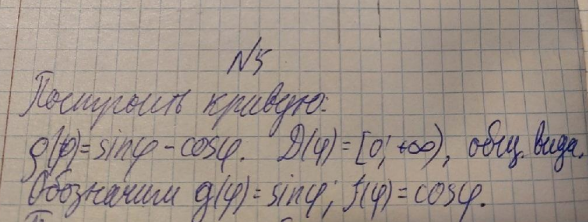 N5
Построить кривую:
ρ(φ)=sinφ-cosφ. D(φ)=[0;+∞), общ. вида.
Обозначим g(φ)=sinφ; f(φ)=cosφ.